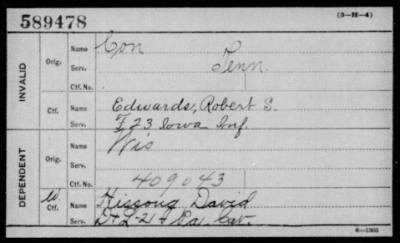 589478
(3-H-4)
INVALID
Orig.
Name Con
Serv. Tenn.
Ctf. No.
Ctf. Name Edwards, Robert S.
Serv. F 23 Iowa Inf.
DEPENDENT
Orig.
Name Wis
Serv.
Ctf. No. 409043
Ctf. W. Name Hissong David
Serv. D & L-21 Pa Cav.